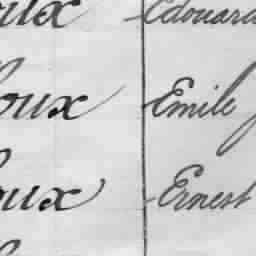 oux Edouard
oux Emile
oux Ernest